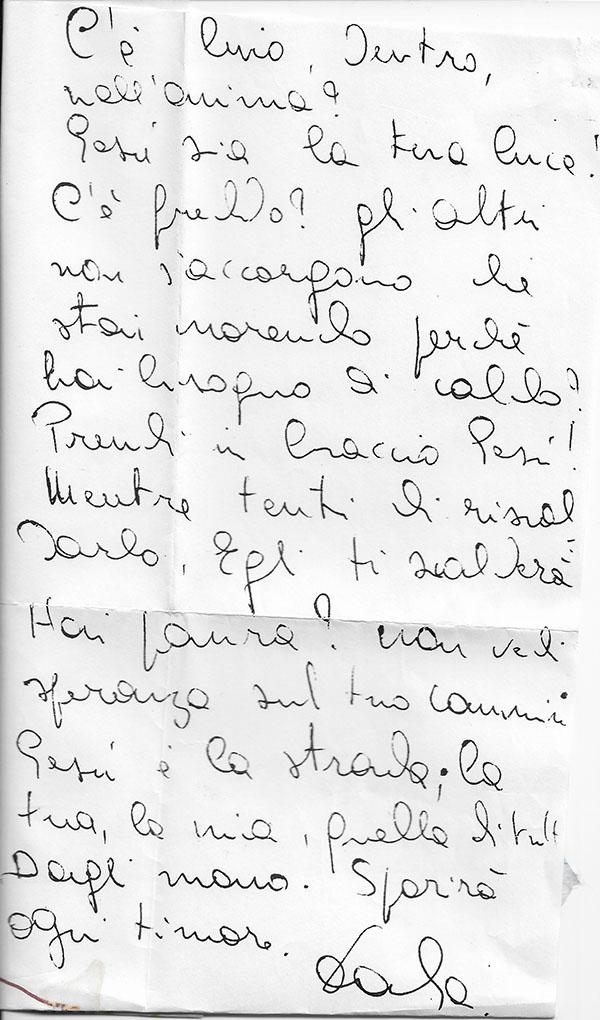 C'è buio, dentro,
nell'anima?
Gesù sia la tua luce!
C'è freddo? gli altri
non s'accorgono che
stai morendo perchè
hai bisogno di caldo?
Prendi in braccio Gesù!
Mentre tenti di riscal
darlo, Egli ti scalderà
Hai paura? non vedi
speranza sul tuo cammin
Gesù è la strada; la
tua, la mia, quella di tutt
Dagli mano. Sparirà
ogni timore.